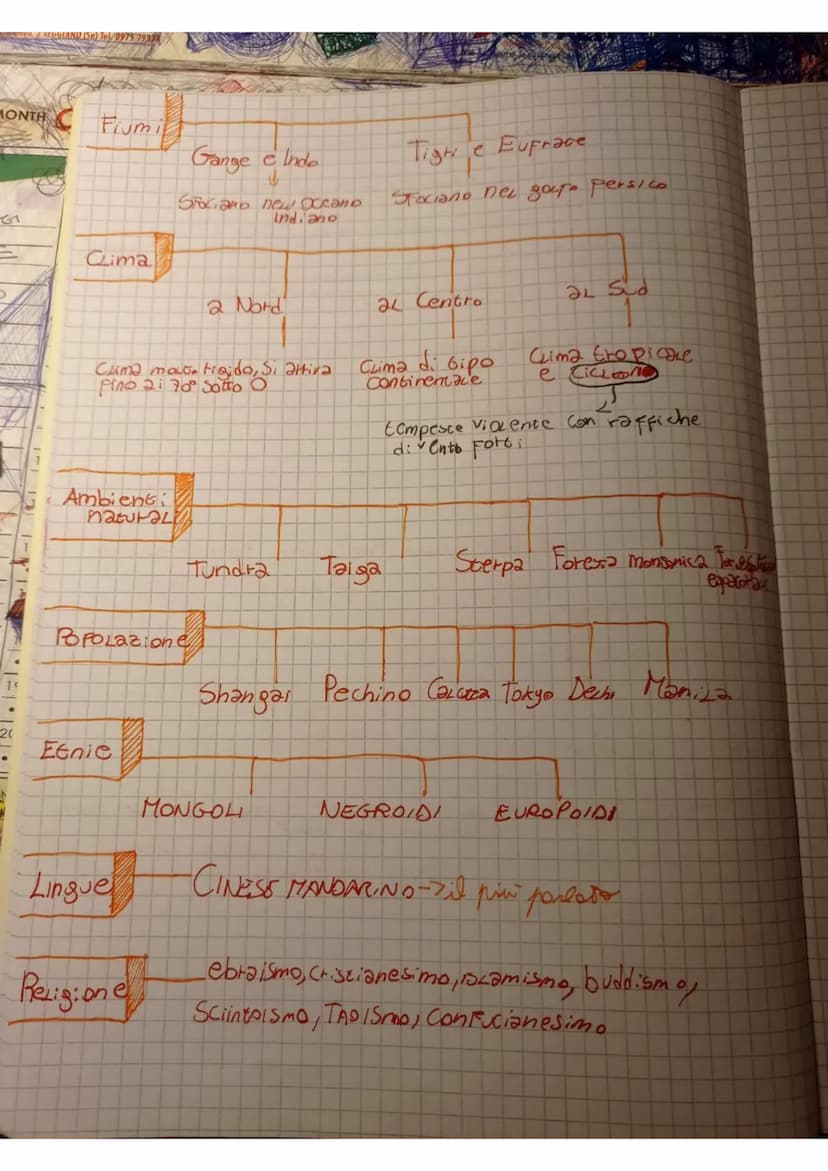 TEGGIANO (Sa) Tel. 0975 7933
MONTH
Fiumi
Gange e Indo
Tigri e Eufrate
Sfociano nell'oceano
Indiano
Sfociano nel golfo persico
Clima
a Nord
al Centro
al Sud
Clima molto rigido, si arriva
fino ai 70° sotto 0
Clima di tipo
continentale
Clima tropicale
e cicloni
tempeste violente con raffiche
di vento forti
Ambienti
naturali
Tundra
Taiga
Sterpa
Foresta monsonica
Foresta
equatoriale
Popolazione
Shangai
Pechino
Calcutta
Tokyo
Dechi
Manila
Etnie
MONGOLI
NEGROIDI
EUROPOIDI
Lingue
CINESE MANDARINO -> il più parlato
Religione
ebraismo, cristianesimo, islamismo, buddismo,
Sciintoismo, TAOISmo, Confucianesimo